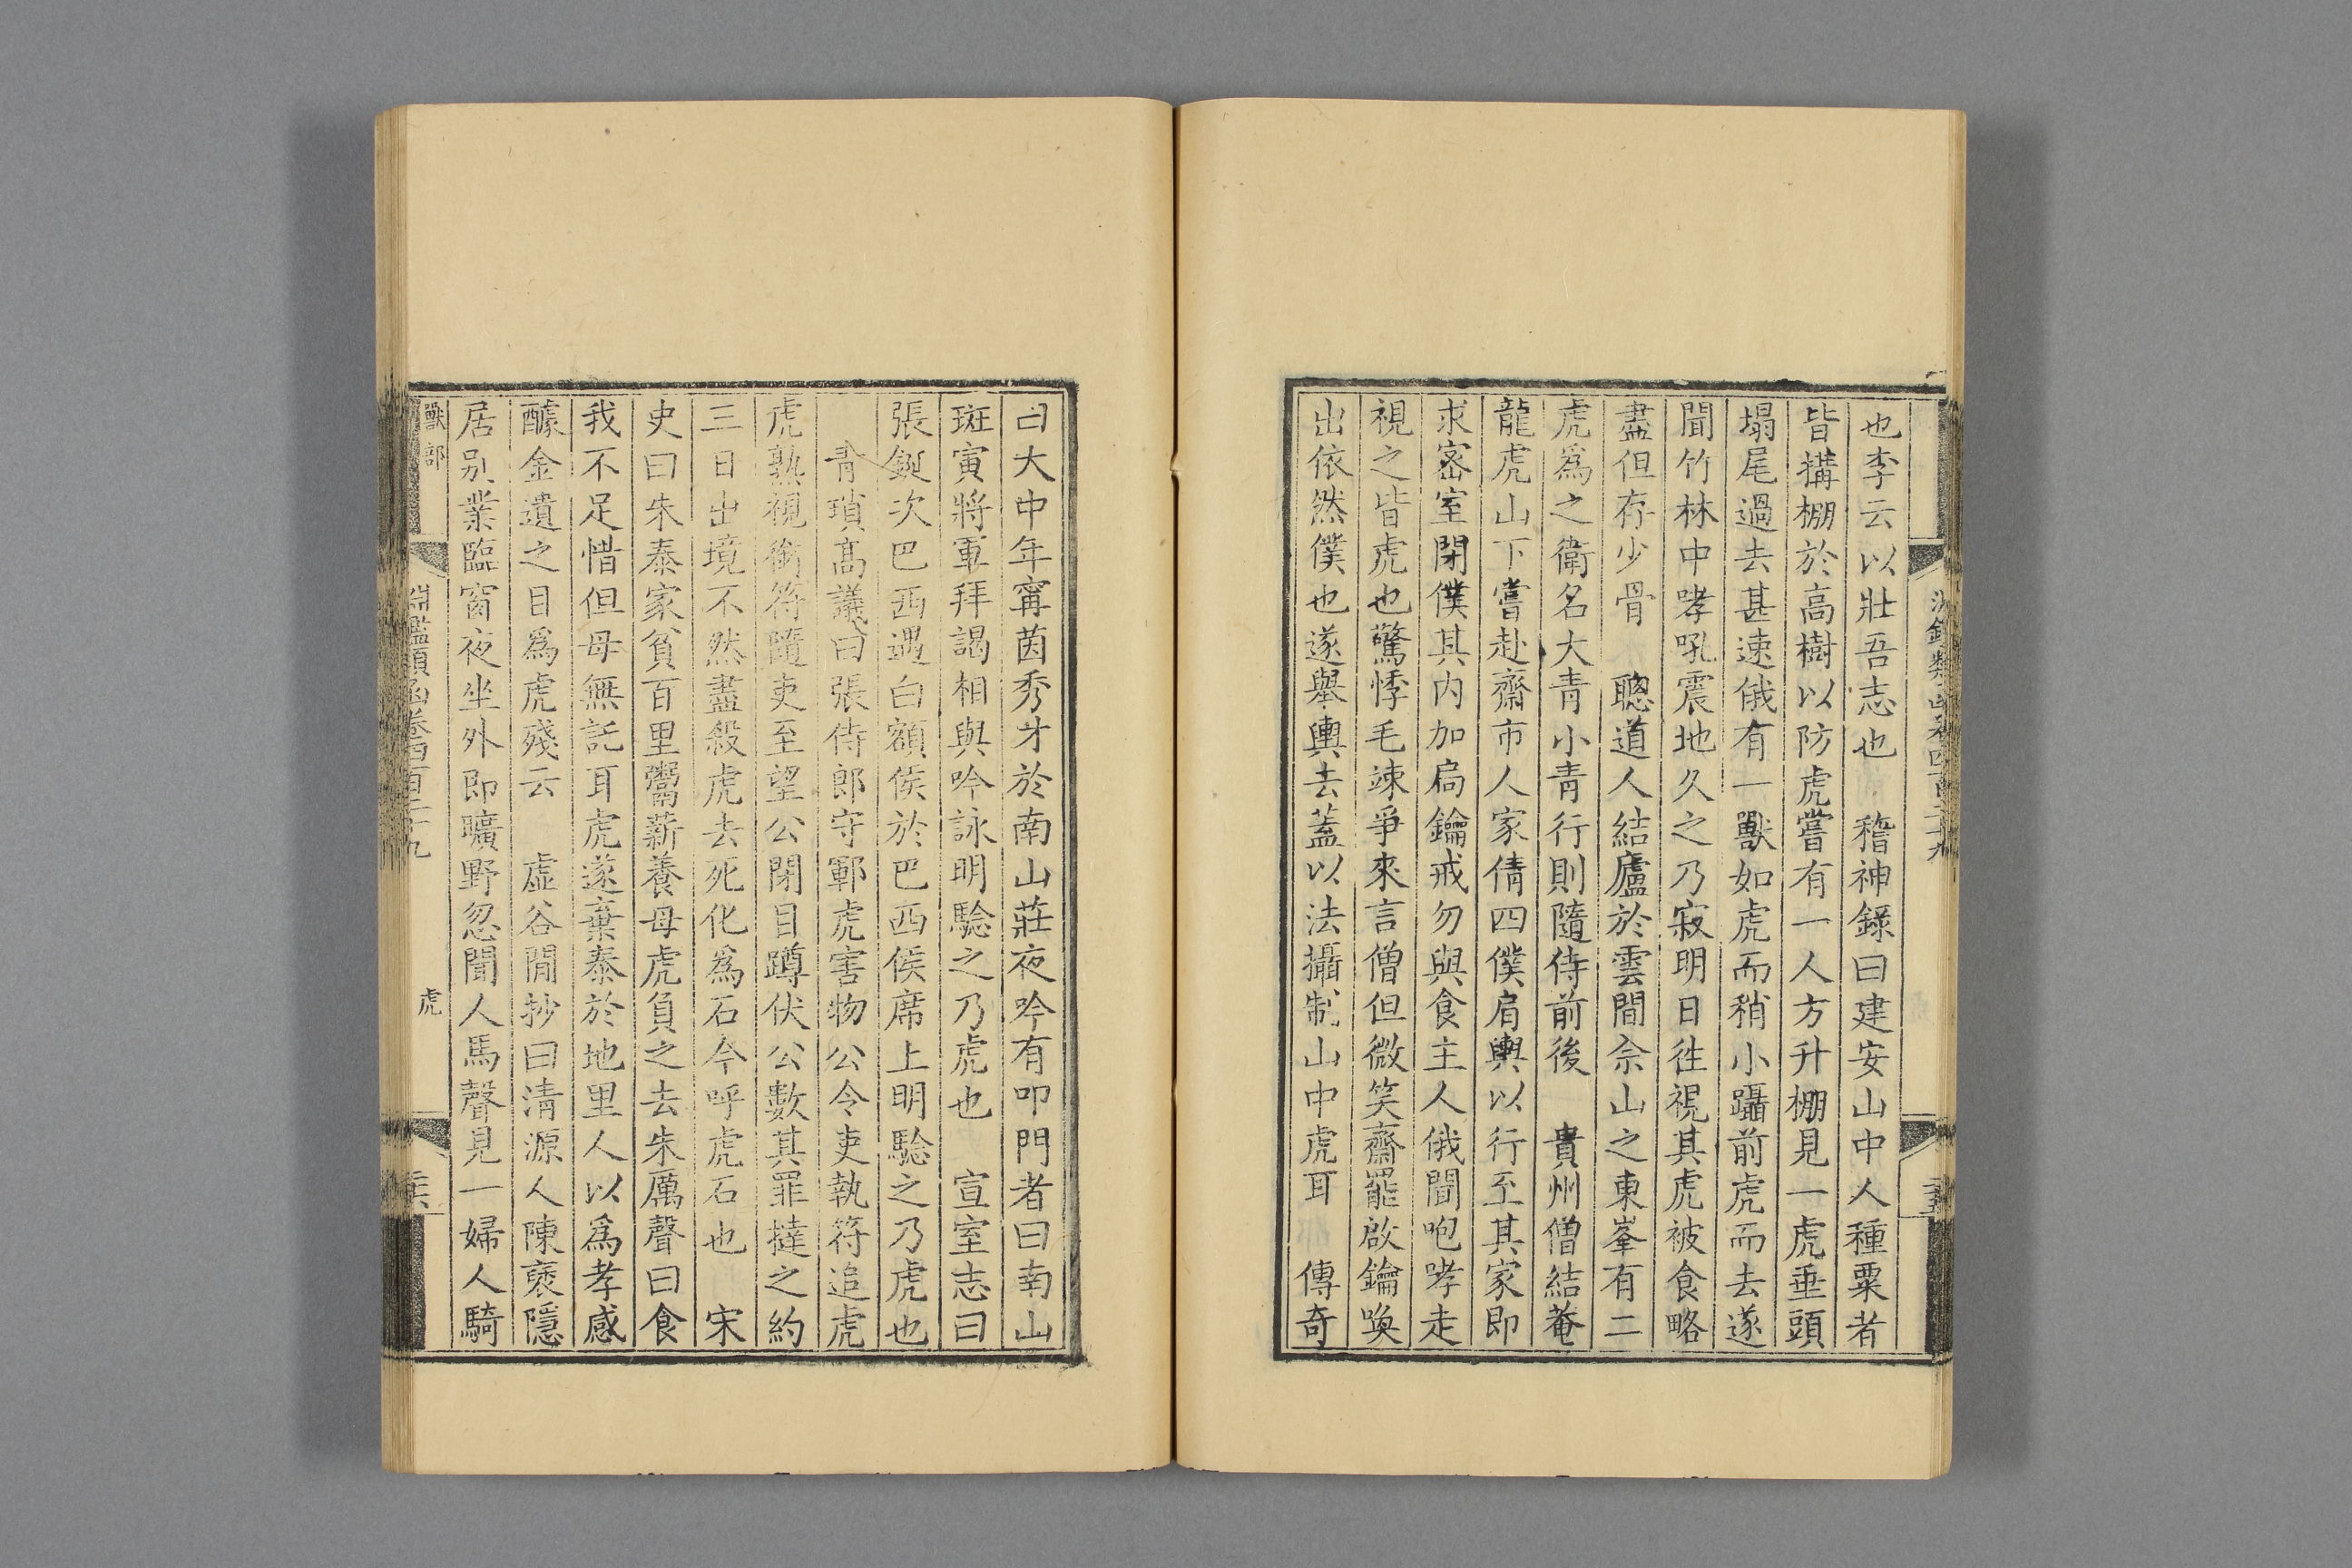 也李云以壯吾志也　稽神錄曰建安山中人種粟者
皆構棚於高樹以防虎嘗有一人方升棚見一虎垂頭
塌尾過去甚速俄有一獸如虎而稍小躡前虎而去遂
聞竹林中哮吼震地久之乃寂明日徃視其虎被食略
盡但存少骨　聰道人結廬於雲間佘山之東峯有二
虎爲之衛名大青小青行則隨侍前後　貴州僧結菴
龍虎山下嘗赴齋市人家倩四僕肩輿以行至其家即
求宻室閉僕其内加扃鑰戒勿與食主人俄聞咆哮走
視之皆虎也驚悸毛竦爭來言僧但微笑齋罷啟鑰喚
出依然僕也遂舉輿去蓋以法攝制山中虎耳　傳奇
曰大中年甯茵秀才於南山莊夜吟有叩門者曰南山
斑寅將軍拜謁相與吟詠明騐之乃虎也　宣室志曰
張鋋次巴西遇白額侯於巴西侯席上明騐之乃虎也
青瑣髙議曰張侍郎守鄆虎害物公令吏執符追虎
虎熟視銜符隨吏至望公閉目蹲伏公數其罪撻之約
三日出境不然盡殺虎去死化爲石今呼虎石也　宋
史曰朱泰家貧百里鬻薪養母虎負之去朱厲聲曰食
我不足惜但母無託耳虎遂棄泰於地里人以爲孝感
醵金遺之目爲虎殘云　虛谷閒抄曰清源人陳褒隱
居别業臨窗夜坐外即曠野忽聞人馬聲見一婦人騎
獸部
淵鑑類函卷四百二十九
虎